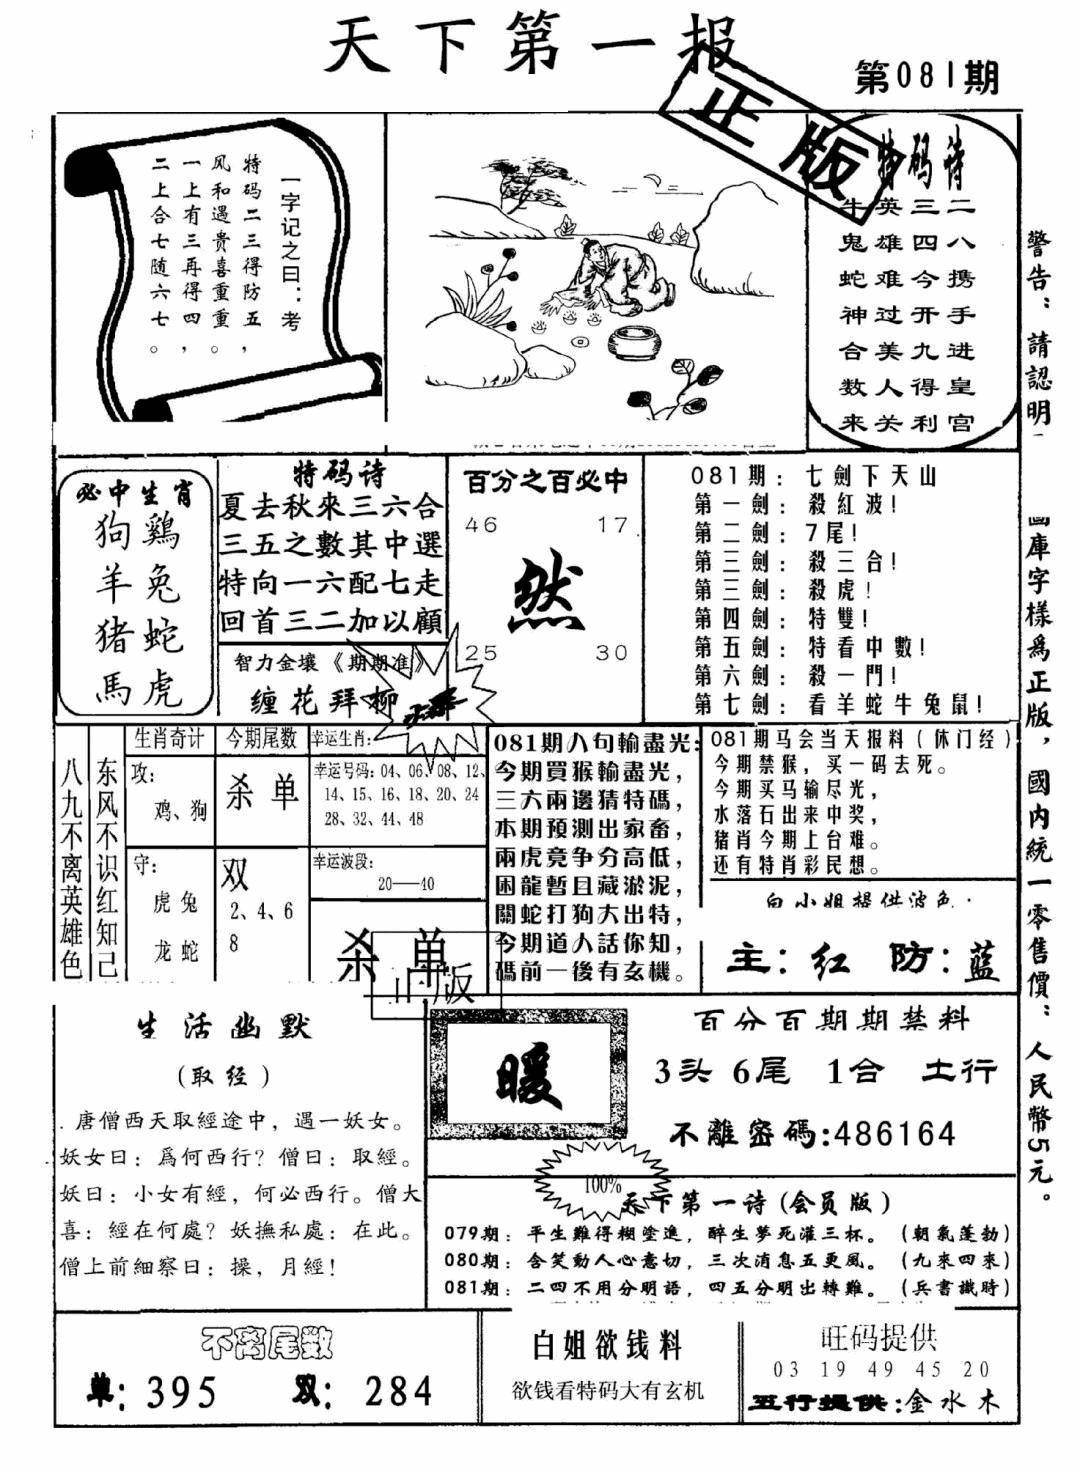 天下第一报
第081期
正版
一字记之曰：考
特码二三得防五，
风和遇贵喜重重。
一上有三再得四，
二上合七随六七。
特码诗
二八携手进皇宫
三四今开九得利
英雄难过美人关
牛鬼蛇神合数来
警告：請認明
國庫字樣為正版，國内統一零售價：人民幣5元。
必中生肖
狗鷄
羊兔
猪蛇
馬虎
特码诗
夏去秋來三六合
三五之數其中選
特向一六配七走
回首三二加以顧
智力金壤《期期准》
缠花拜柳
百分之百必中
46 17
然
25 30
081期：七劍下天山
第一劍：殺紅波！
第二劍：7尾！
第三劍：殺三合！
第三劍：殺虎！
第四劍：特雙！
第五劍：特看中數！
第六劍：殺一門！
第七劍：看羊蛇牛兔鼠！
八九不离英雄色
东风不识红知己
生肖奇计
攻：
鸡、狗
守：
虎兔
龙蛇
今期尾数
杀单
双
2、4、6
8
幸运生肖：
幸运号码：04、06、08、12、
14、15、16、18、20、24
28、32、44、48
幸运波段：
20——40
杀单
正版
081期八句輸盡光：
今期買猴輸盡光，
三六兩邊猜特碼，
本期預測出家畜，
兩虎竟争分高低，
困龍暫且藏淤泥，
關蛇打狗大出特，
今期道人話你知，
碼前一後有玄機。
081期马会当天报料（休门经）
今期禁猴，买一码去死。
今期买马输尽光，
水落石出来中奖，
猪肖今期上台难。
还有特肖彩民想。
白小姐提供波色：
主：红 防：蓝
生活幽默
（取经）
唐僧西天取經途中，遇一妖女。
妖女曰：爲何西行？僧曰：取經。
妖曰：小女有經，何必西行。僧大
喜：經在何處？妖撫私處：在此。
僧上前細察曰：操，月經！
暖
百分百期期禁料
3头 6尾 1合 土行
不離密碼：486164
100%
天下第一诗（会员版）
079期：平生難得糊塗進，醉生夢死灌三杯。（朝氣蓬勃）
080期：含笑動人心意切，三次消息五更風。（九來四來）
081期：二四不用分明語，四五分明出轉難。（兵書識時）
不离尾数
单：395 双：284
白姐欲钱料
欲钱看特码大有玄机
旺码提供
03 19 49 45 20
五行提供：金水木